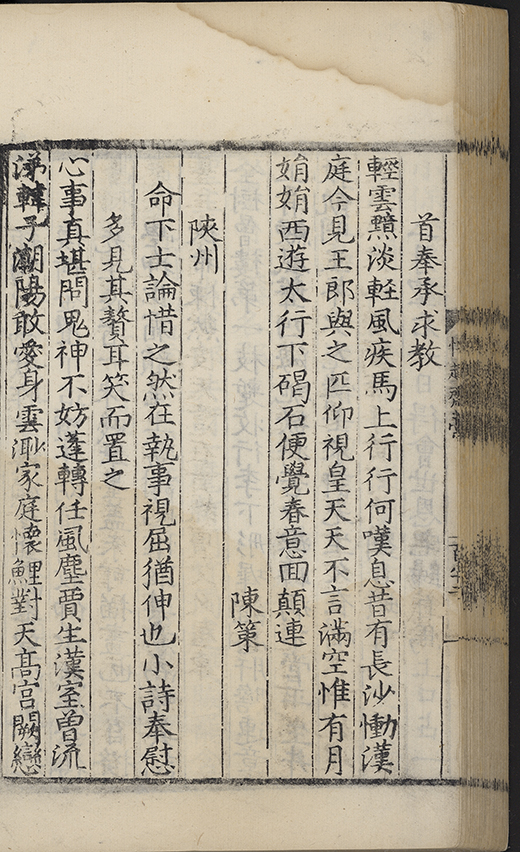 首奉承求教
輕雲黯淡軽風疾馬上行行何嘆息昔有長沙慟漢
庭今見王郎與之匹仰視皇天天不言滿空惟有月
娟娟西遊太行下碣石便覺春意囬顛連
陳策
陝州
命下士論惜之然在執事視屈猶伸也小詩奉慰
多見其贅耳笑而置之
心事真堪問鬼神不妨蓬轉任風塵賈生漢室曽流
涕韓子潮陽敢愛身雲泖家庭懷鯉對天髙宮闕戀